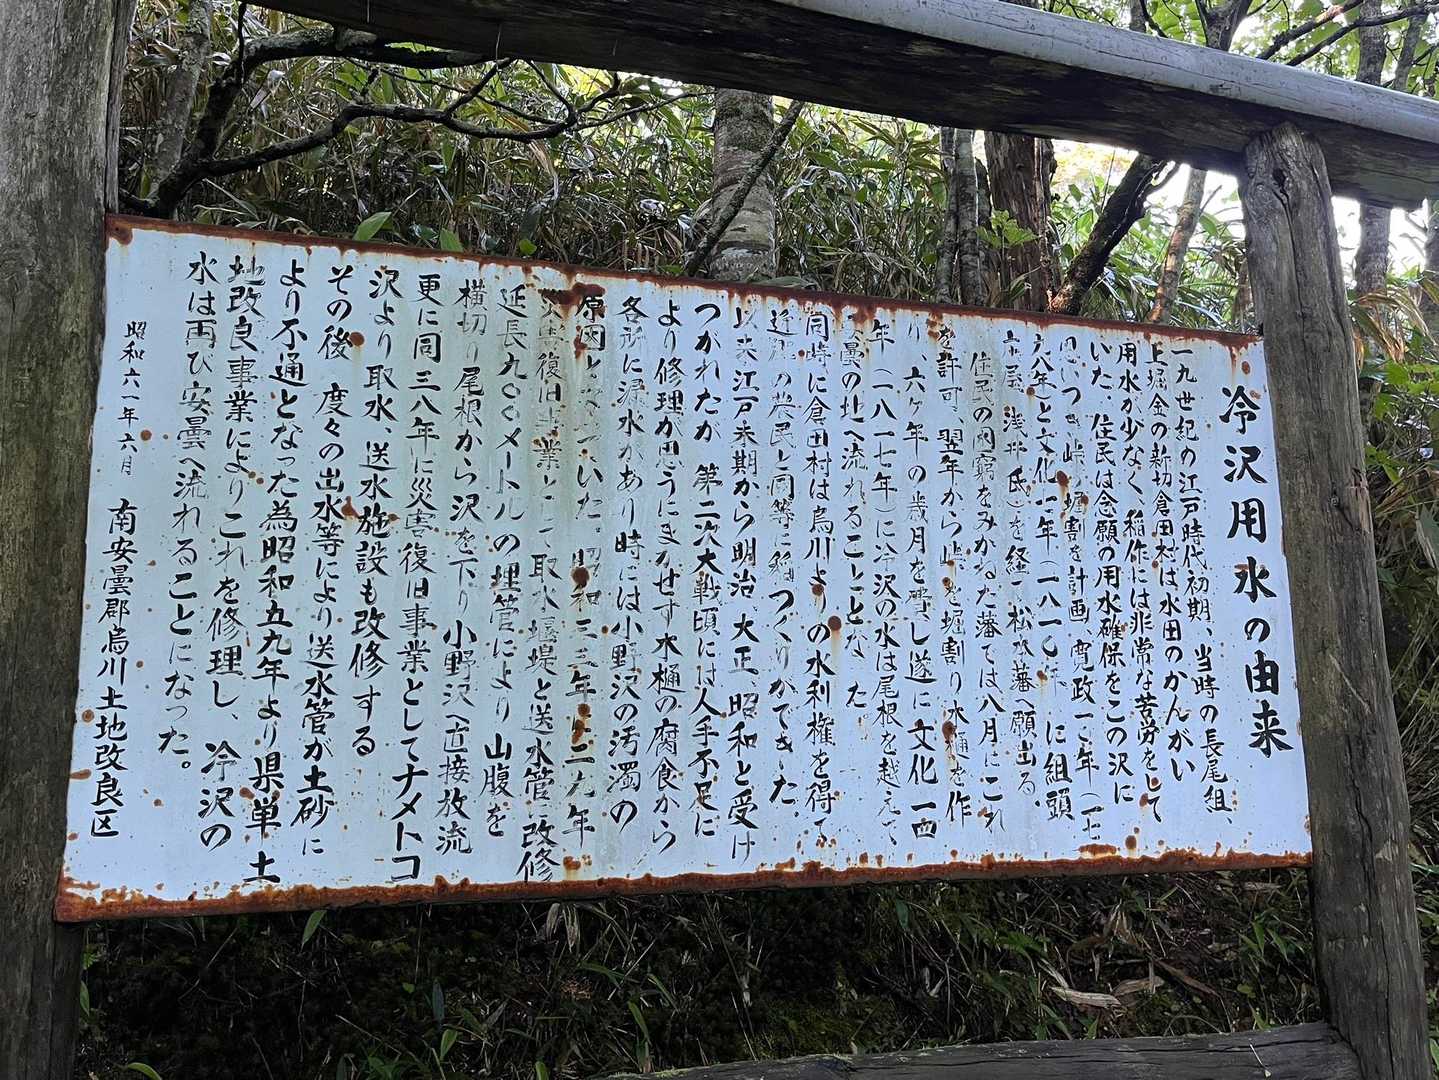 冷沢用水の由来
一九世紀の江戸時代初期、当時の長尾組、
上堀金の新切倉田村は水田のかんがい
用水が少なく、稲作には非常な苦労をして
いた。住民は念願の用水確保をこの沢に
つき峠の堀割を計画、寛政一二年(一七
八年)と文化一一年(一八一 に組頭
屋浅井氏)を経て松本藩へ願出る。
住民の困窮をみかねた藩では八月にこれ
を許可、翌年から峠を堀割り水桶を作
り、六ヶ年の歳月を費し遂に文化一四
年(一八一七年)に冷沢の水は尾根を越えて、
安曇の地へ流れることとなった。
同時に倉田村は烏川よりの水利権を得て
近 の農民と同等に稲つくりができた。
以来江戸末期から明治、大正、昭和と受け
つがれたが、第二次大戦頃には人手不足に
より修理が思うにまかせず水樋の腐食から
各所に漏水があり時には小野沢の汚濁の
原因となっていた。昭和三三年と二九年
災害復旧事業として取水堰堤と送水管改修
延長九〇〇メートルの埋管により山腹を
横切り尾根から沢を下り小野沢へ直接放流
更に同三八年に災害復旧事業としてナメトコ
沢より取水、送水施設も改修する
その後、度々の出水等により送水管が土砂に
より不通となった為昭和五九年より県単土
地改良事業によりこれを修理し、冷沢の
水は再び安曇へ流れることになった。
昭和六一年六月 南安曇郡烏川土地改良区